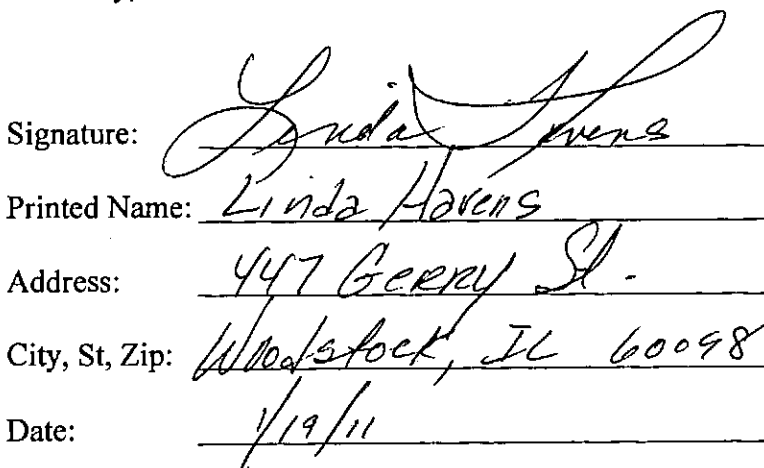 Signature: Linda Havens
Printed Name: Linda Havens
Address: 447 Gerry St.
City, St, Zip: Woodstock, IL 60098
Date: 1/19/11